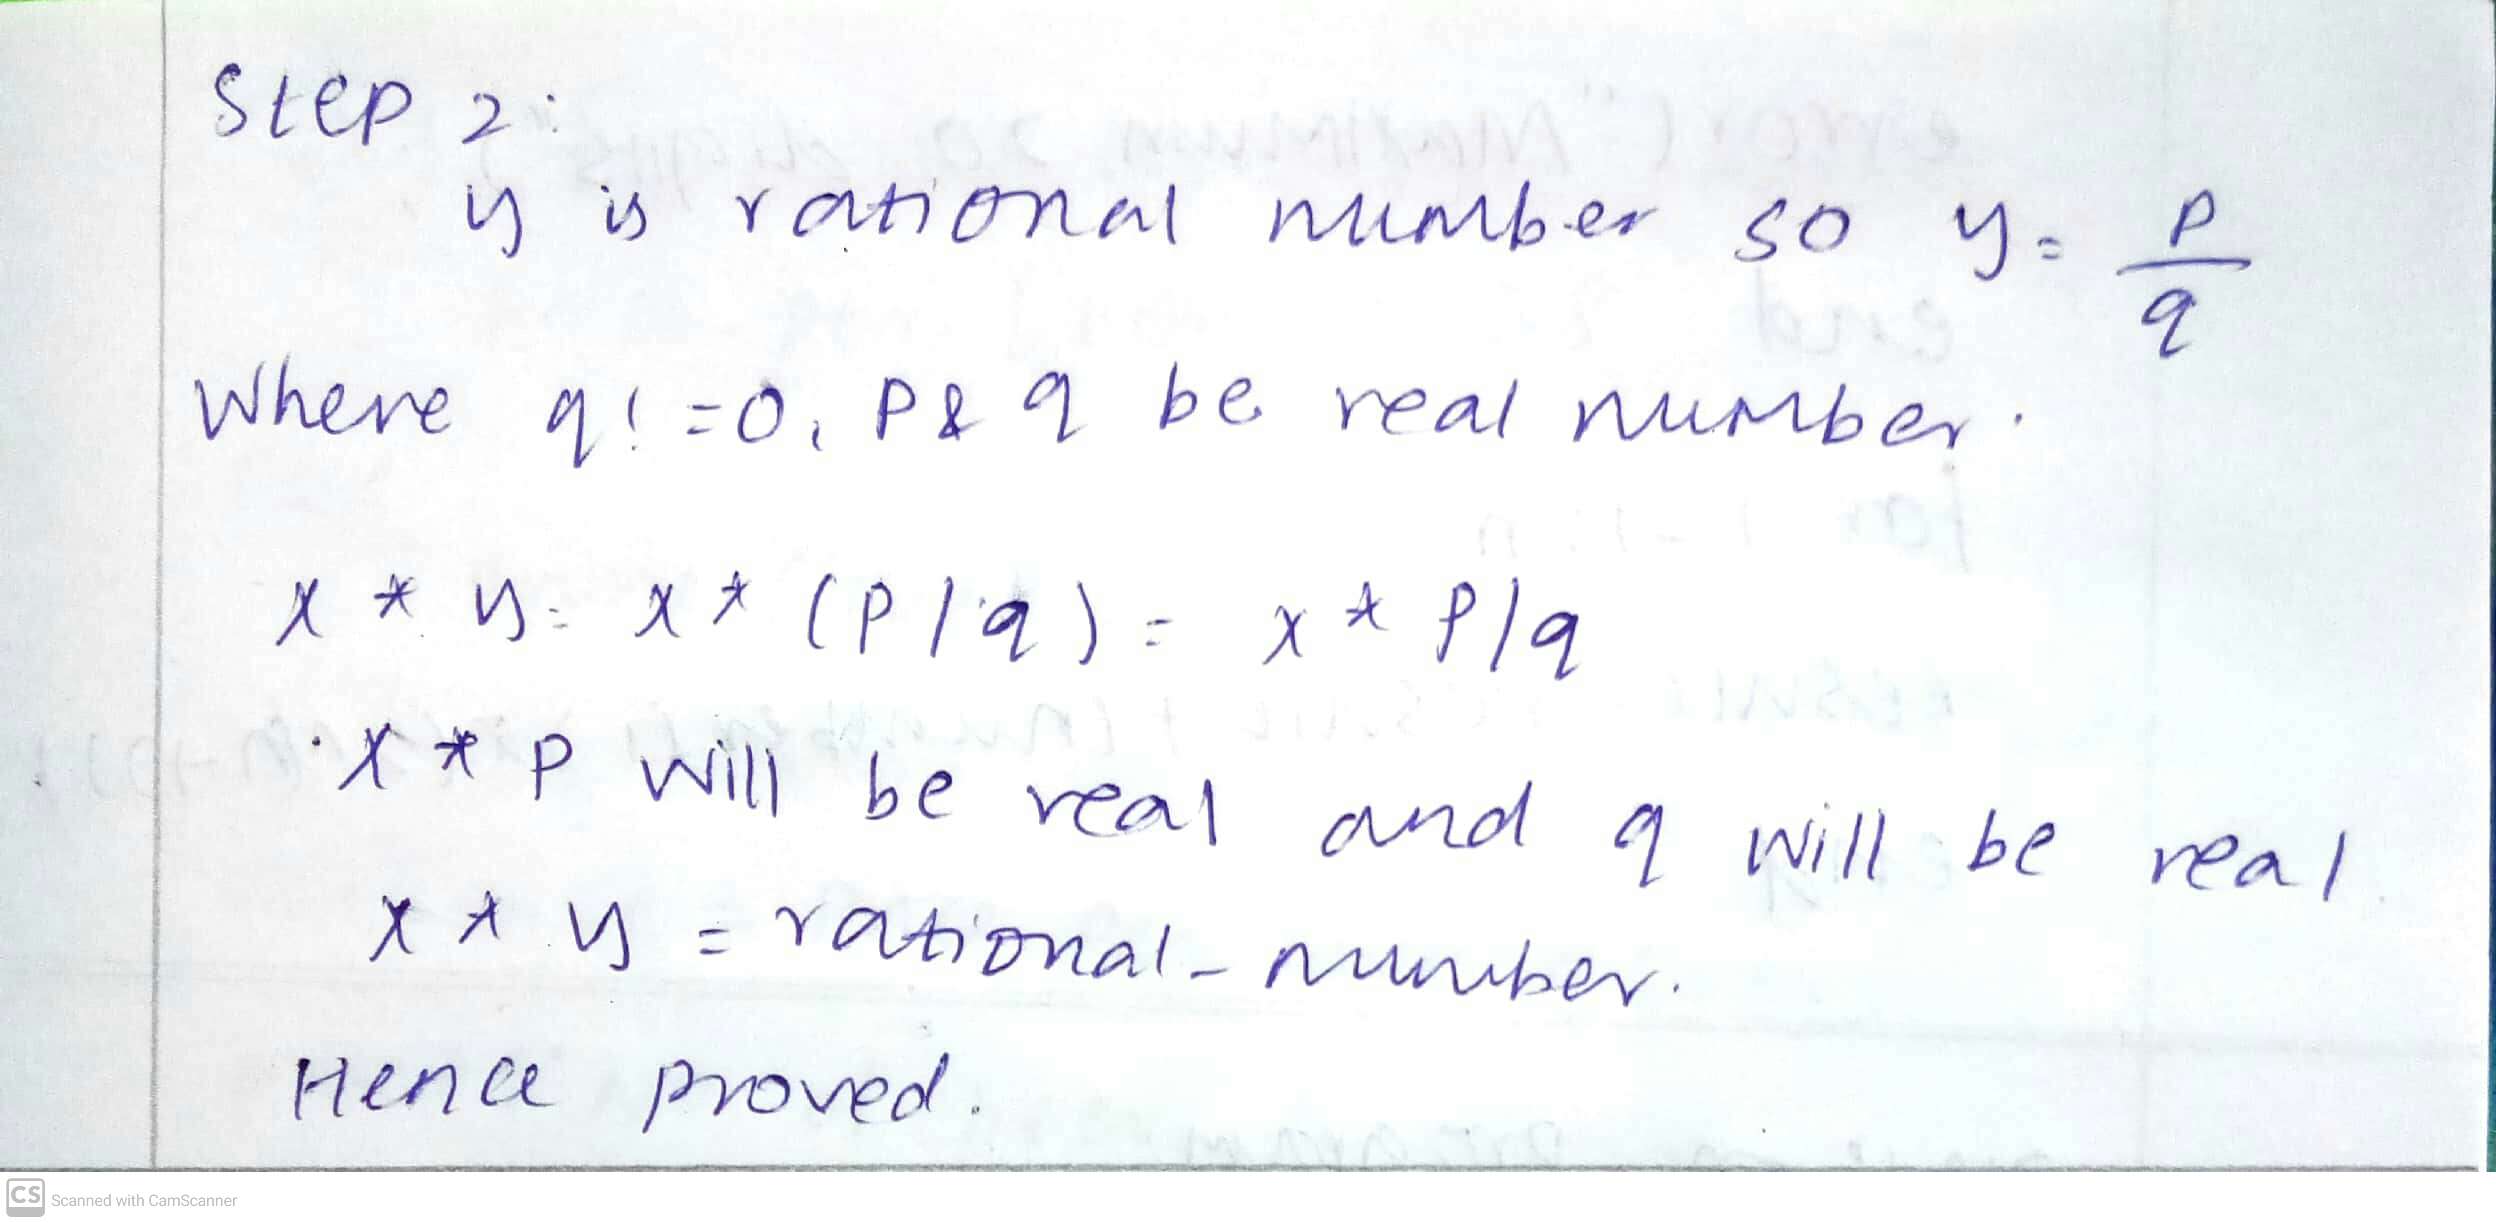 Step 2:
y is rational number so y = p
q
Where q! = 0, P & q be real number.
x * y = x * (P/q) = x * P/q
x * p will be real and q will be real
x * y = rational-number.
Hence proved.
CS Scanned with CamScanner